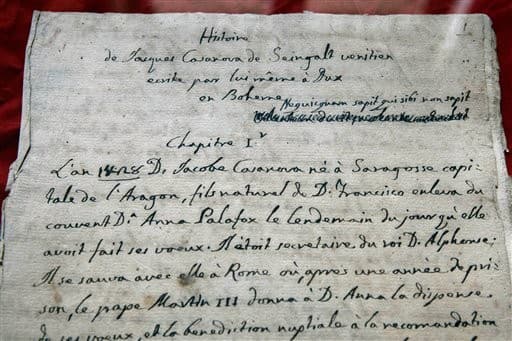 Histoire
de Jacques Casanova de Seingalt venitien
ecrite par lui même à Dux
en Boheme
Nequicquam sapit qui sibi non sapit
Chapitre I.r
L'an 1428 D. Jacobe Casanova né à Saragosse capi-
tale de l'Aragon, fils naturel de D. Francisco enleva du
couvent D.a Anna Palafox le lendemain du jour qu'elle
avoit fait ses voeux. Il étoit secretaire du roi D. Alphonse;
Il se sauva avec elle à Rome où, après une année de pri-
son, le pape Martin III donna à D. Anna la dispense
de ses voeux, et la benediction nuptiale à la recomandation